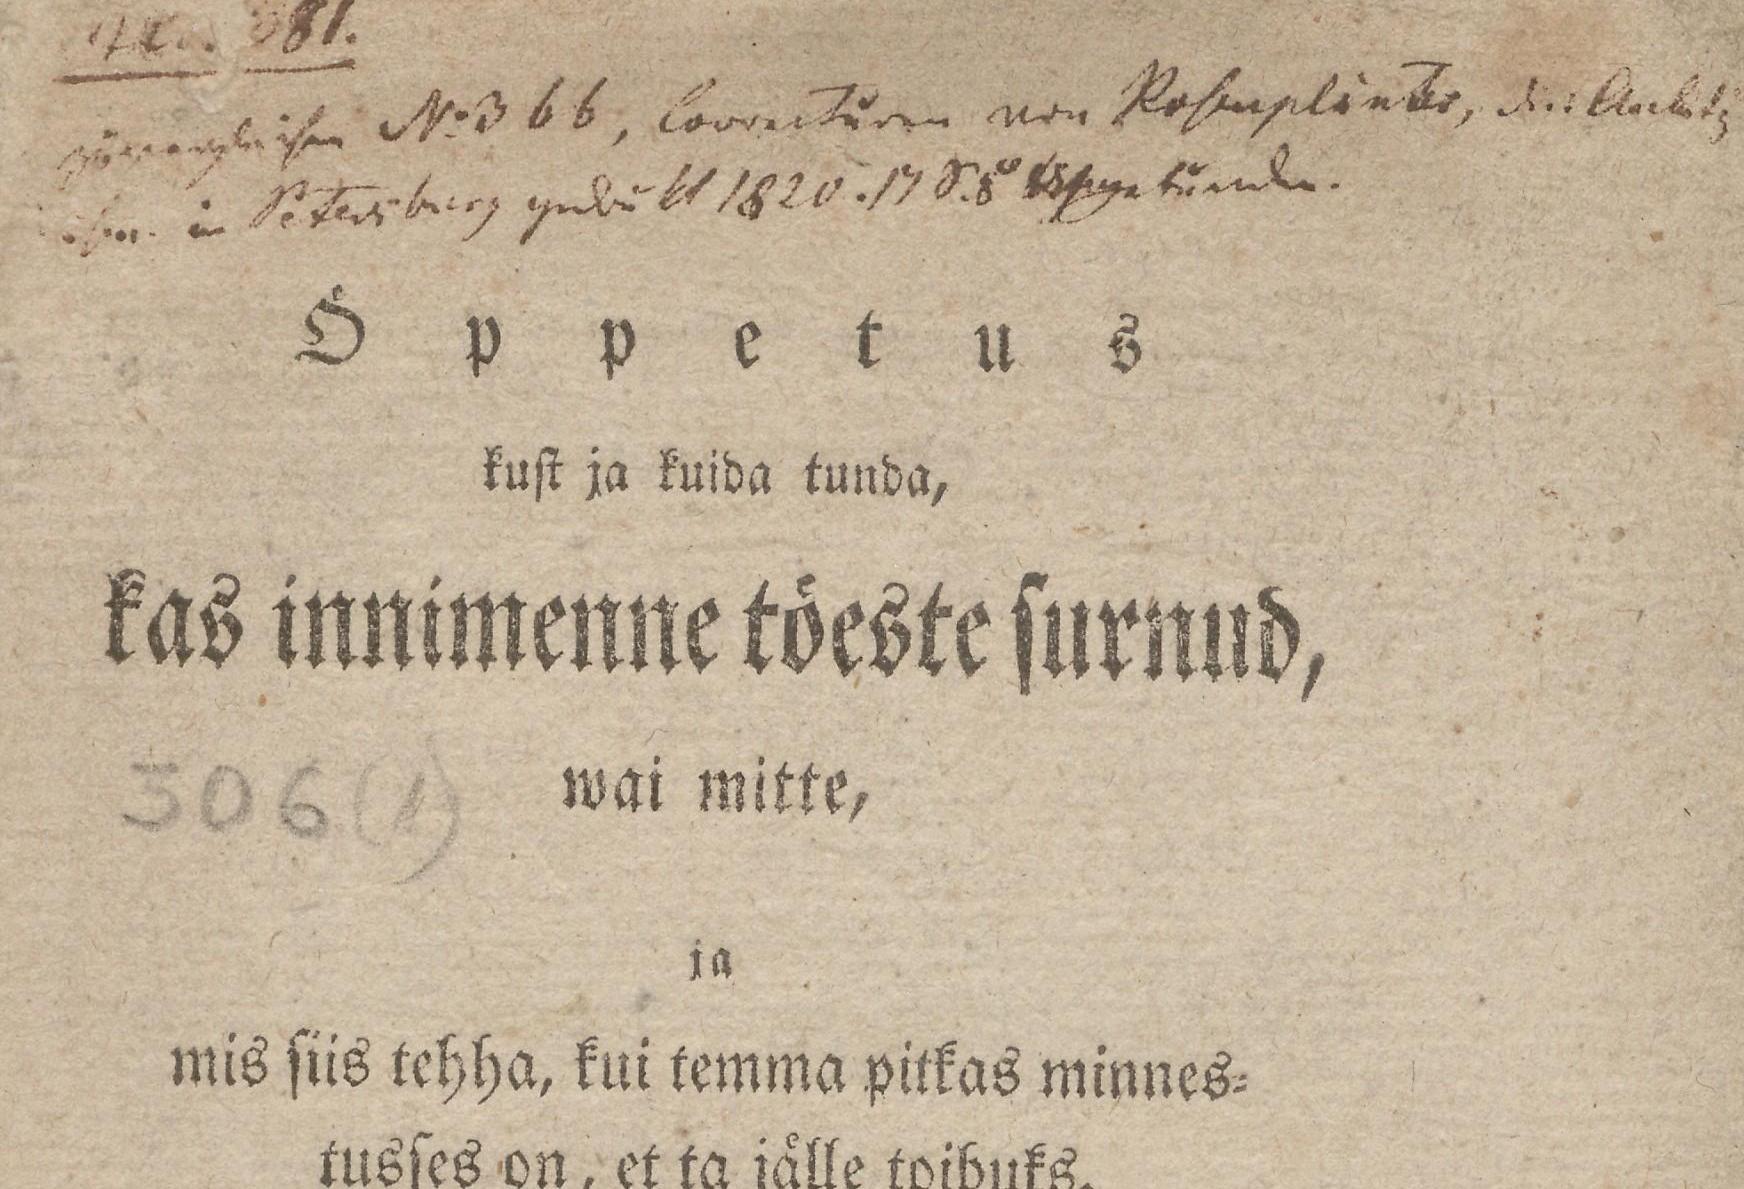 381.
zu vergleichen No 366, Correcturen von Rosenplänter, die
in Petersburg gedruckt 1820. 17 S. 8°
Öppetus
kust ja kuida tunda,
kas innimenne töeste surnud,
wai mitte,
306(1)
ja
mis siis tehha, kui temma pitkas minnes-
tusses on, et ta jälle toibuks.